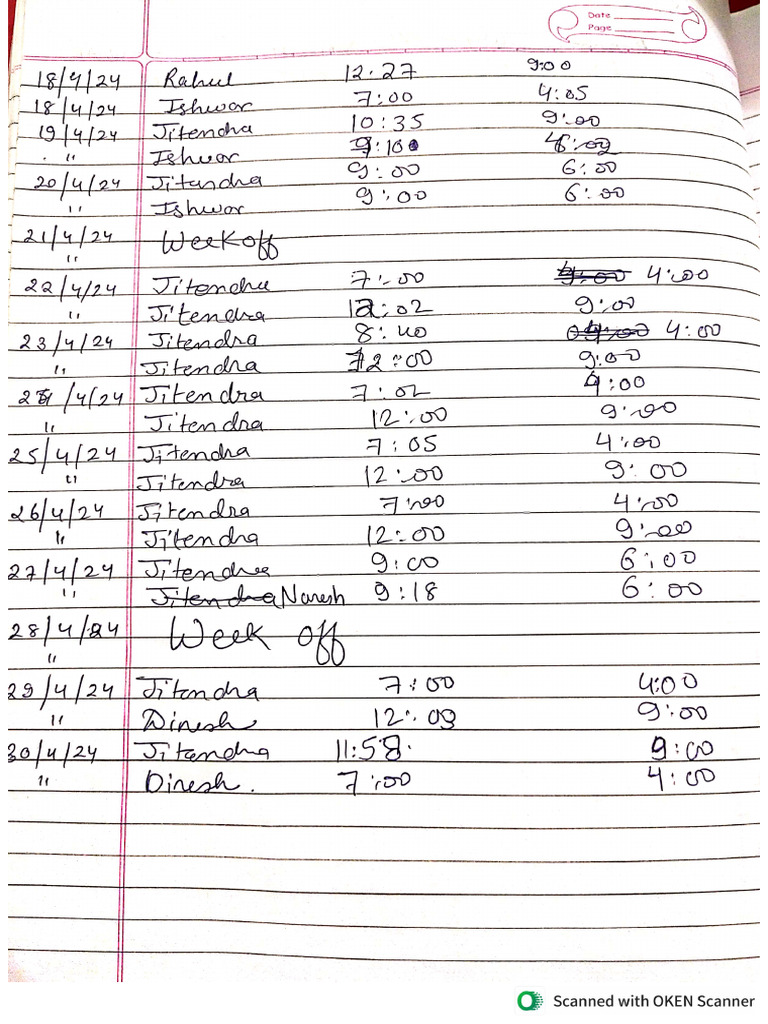 Date
Page
18/4/24 Rahul 12:27 9:00
18/4/24 Ishwar 7:00 4:05
19/4/24 Jitendra 10:35 9:00
" Ishwar :10
20/4/24 Jitandra 9:00 6:00
" Ishwar 9:00 6:00
21/4/24 Week off
"
22/4/24 Jitendra 7:00 9:00 4:00
" Jitendra 12:02 9:00
23/4/24 Jitendra 8:40 4:00
" Jitendra 12:00 9:00
/4/24 Jitendra 7:02 4:00
" Jitendra 12:00 9:00
25/4/24 Jitendra 7:05 4:00
" Jitendra 12:00 9:00
26/4/24 Jitendra 7:00 4:00
" Jitendra 12:00 9:00
27/4/24 Jitendra 9:00 6:00
" Jitendra Naresh 9:18 6:00
28/4/24 Week off
"
29/4/24 Jitendra 7:00 4:00
" Dinesh 12:09 9:00
30/4/24 Jitandra 11:58 9:00
" Dinesh. 7:00 4:00
Scanned with OKEN Scanner